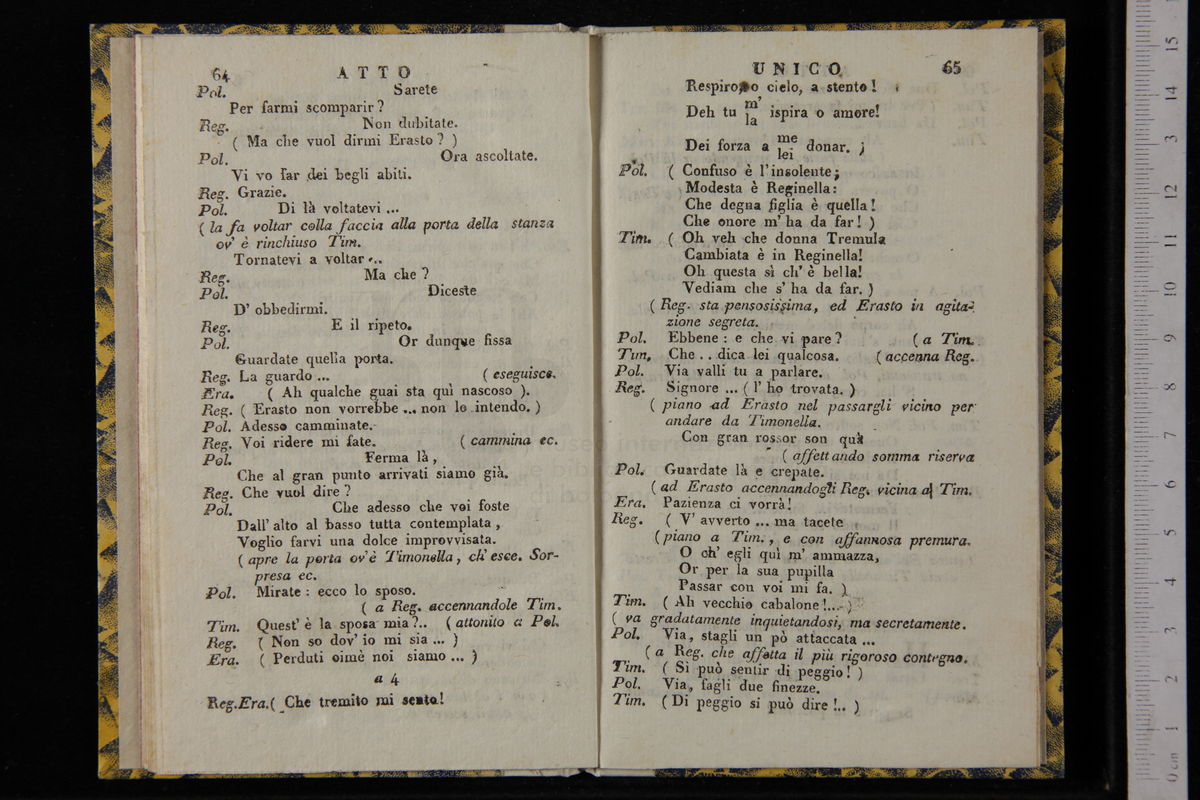 64 ATTO
Pol. Sarete
Per farmi scomparir?
Reg. Non dubitate.
( Ma che vuol dirmi Erasto? )
Pol. Ora ascoltate.
Vi vo far dei begli abiti.
Reg. Grazie.
Pol. Di là voltatevi ...
( la fa voltar colla faccia alla porta della stanza
ov' è rinchiuso Tim.
Tornatevi a voltar ...
Reg. Ma che?
Pol. Diceste
D' obbedirmi.
Reg. E il ripeto.
Pol. Or dunque fissa
Guardate quella porta.
Reg. La guardo ... ( eseguisce.
Era. ( Ah qualche guai sta quì nascoso ).
Reg. ( Erasto non vorrebbe ... non lo intendo. )
Pol. Adesso camminate.
Reg. Voi ridere mi fate. ( cammina ec.
Pol. Ferma là,
Che al gran punto arrivati siamo già.
Reg. Che vuol dire?
Pol. Che adesso che voi foste
Dall' alto al basso tutta contemplata,
Voglio farvi una dolce improvvisata.
( apre la porta ov' è Timonella, ch' esce. Sor-
presa ec.
Pol. Mirate: ecco lo sposo.
( a Reg. accennandole Tim.
Tim. Quest' è la sposa mia?.. ( attonito a Pol.
Reg. ( Non so dov' io mi sia ... )
Era. ( Perduti oimè noi siamo ... )
a 4
Reg.Era.( Che tremito mi sento!
UNICO. 65
Respiro, o cielo, a stento!
Deh tu m' / la ispira o amore!
Dei forza a me / lei donar. )
Pol. ( Confuso è l'insolente;
Modesta è Reginella:
Che degna figlia è quella!
Che onore m' ha da far! )
Tim. ( Oh veh che donna Tremula
Cambiata è in Reginella!
Oh questa sì ch' è bella!
Vediam che s' ha da far. )
( Reg. sta pensosissima, ed Erasto in agita-
zione segreta.
Pol. Ebbene: e che vi pare? ( a Tim.
Tim. Che .. dica lei qualcosa. ( accenna Reg.
Pol. Via valli tu a parlare.
Reg. Signore ... ( l' ho trovata. )
( piano ad Erasto nel passargli vicino per
andare da Timonella.
Con gran rossor son quà
( affettando somma riserva
Pol. Guardate là e crepate.
( ad Erasto accennandogli Reg. vicina a Tim.
Era. Pazienza ci vorrà!
Reg. ( V' avverto ... ma tacete
( piano a Tim., e con affannosa premura.
O ch' egli quì m' ammazza,
Or per la sua pupilla
Passar con voi mi fa. )
Tim. ( Ah vecchio cabalone!... )
( va gradatamente inquietandosi, ma secretamente.
Pol. Via, stagli un pò attaccata ...
( a Reg. che affetta il più rigoroso contegno.
Tim. ( Si può sentir di peggio! )
Pol. Via, fagli due finezze.
Tim. ( Di peggio si può dire!.. )